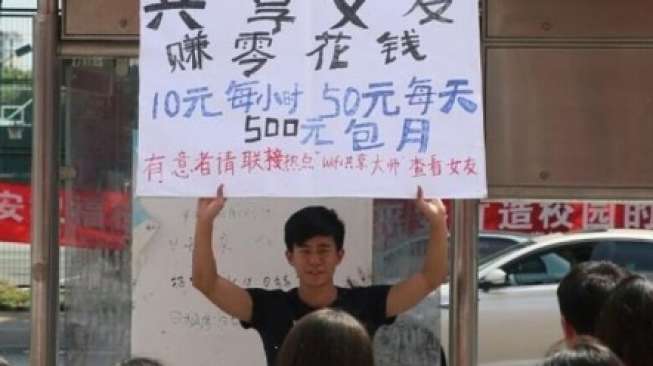 共享女友
赚零花钱
10元每小时 50元每天
500元包月
有意者请联接热点"WiFi共享大师 查看女友
安
造校园的